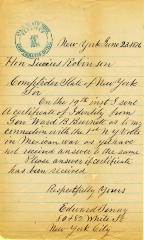 New York June 23, 1876
Hon Lucius Robinson
Comptroller State of New York
Sir
On the 19th inst I sent
A certificate of Identity from
Gen Ward B Burnett as to my
connection with the 1st N.Y. Vols
in Mexican war as yet have
not received answer to the same
Please answer if certificate
has been received
Respectfully Yours
Edward
White St
New York City